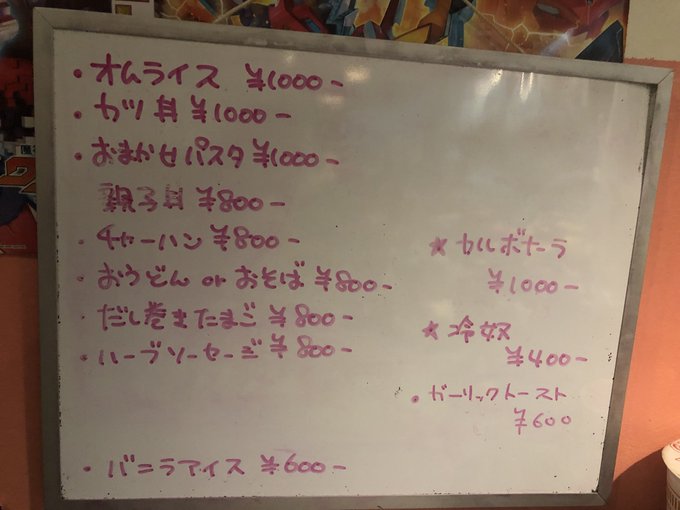 ・オムライス ¥1000-
・カツ丼 ¥1000-
・おまかせパスタ ¥1000-
親子丼 ¥800-
・チャーハン ¥800-
・おうどん or おそば ¥800-
・だし巻きたまご ¥800-
・ハーブソーセージ ¥800-
・バニラアイス ¥600-
★カルボナーラ
¥1000-
★冷奴
¥400-
・ガーリックトースト
¥600